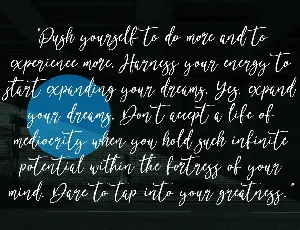 "Push yourself to do more and to
experience more. Harness your energy to
start expanding your dreams. Yes, expand
your dreams. Don't accept a life of
mediocrity when you hold such infinite
potential within the fortress of your
mind. Dare to tap into your greatness."